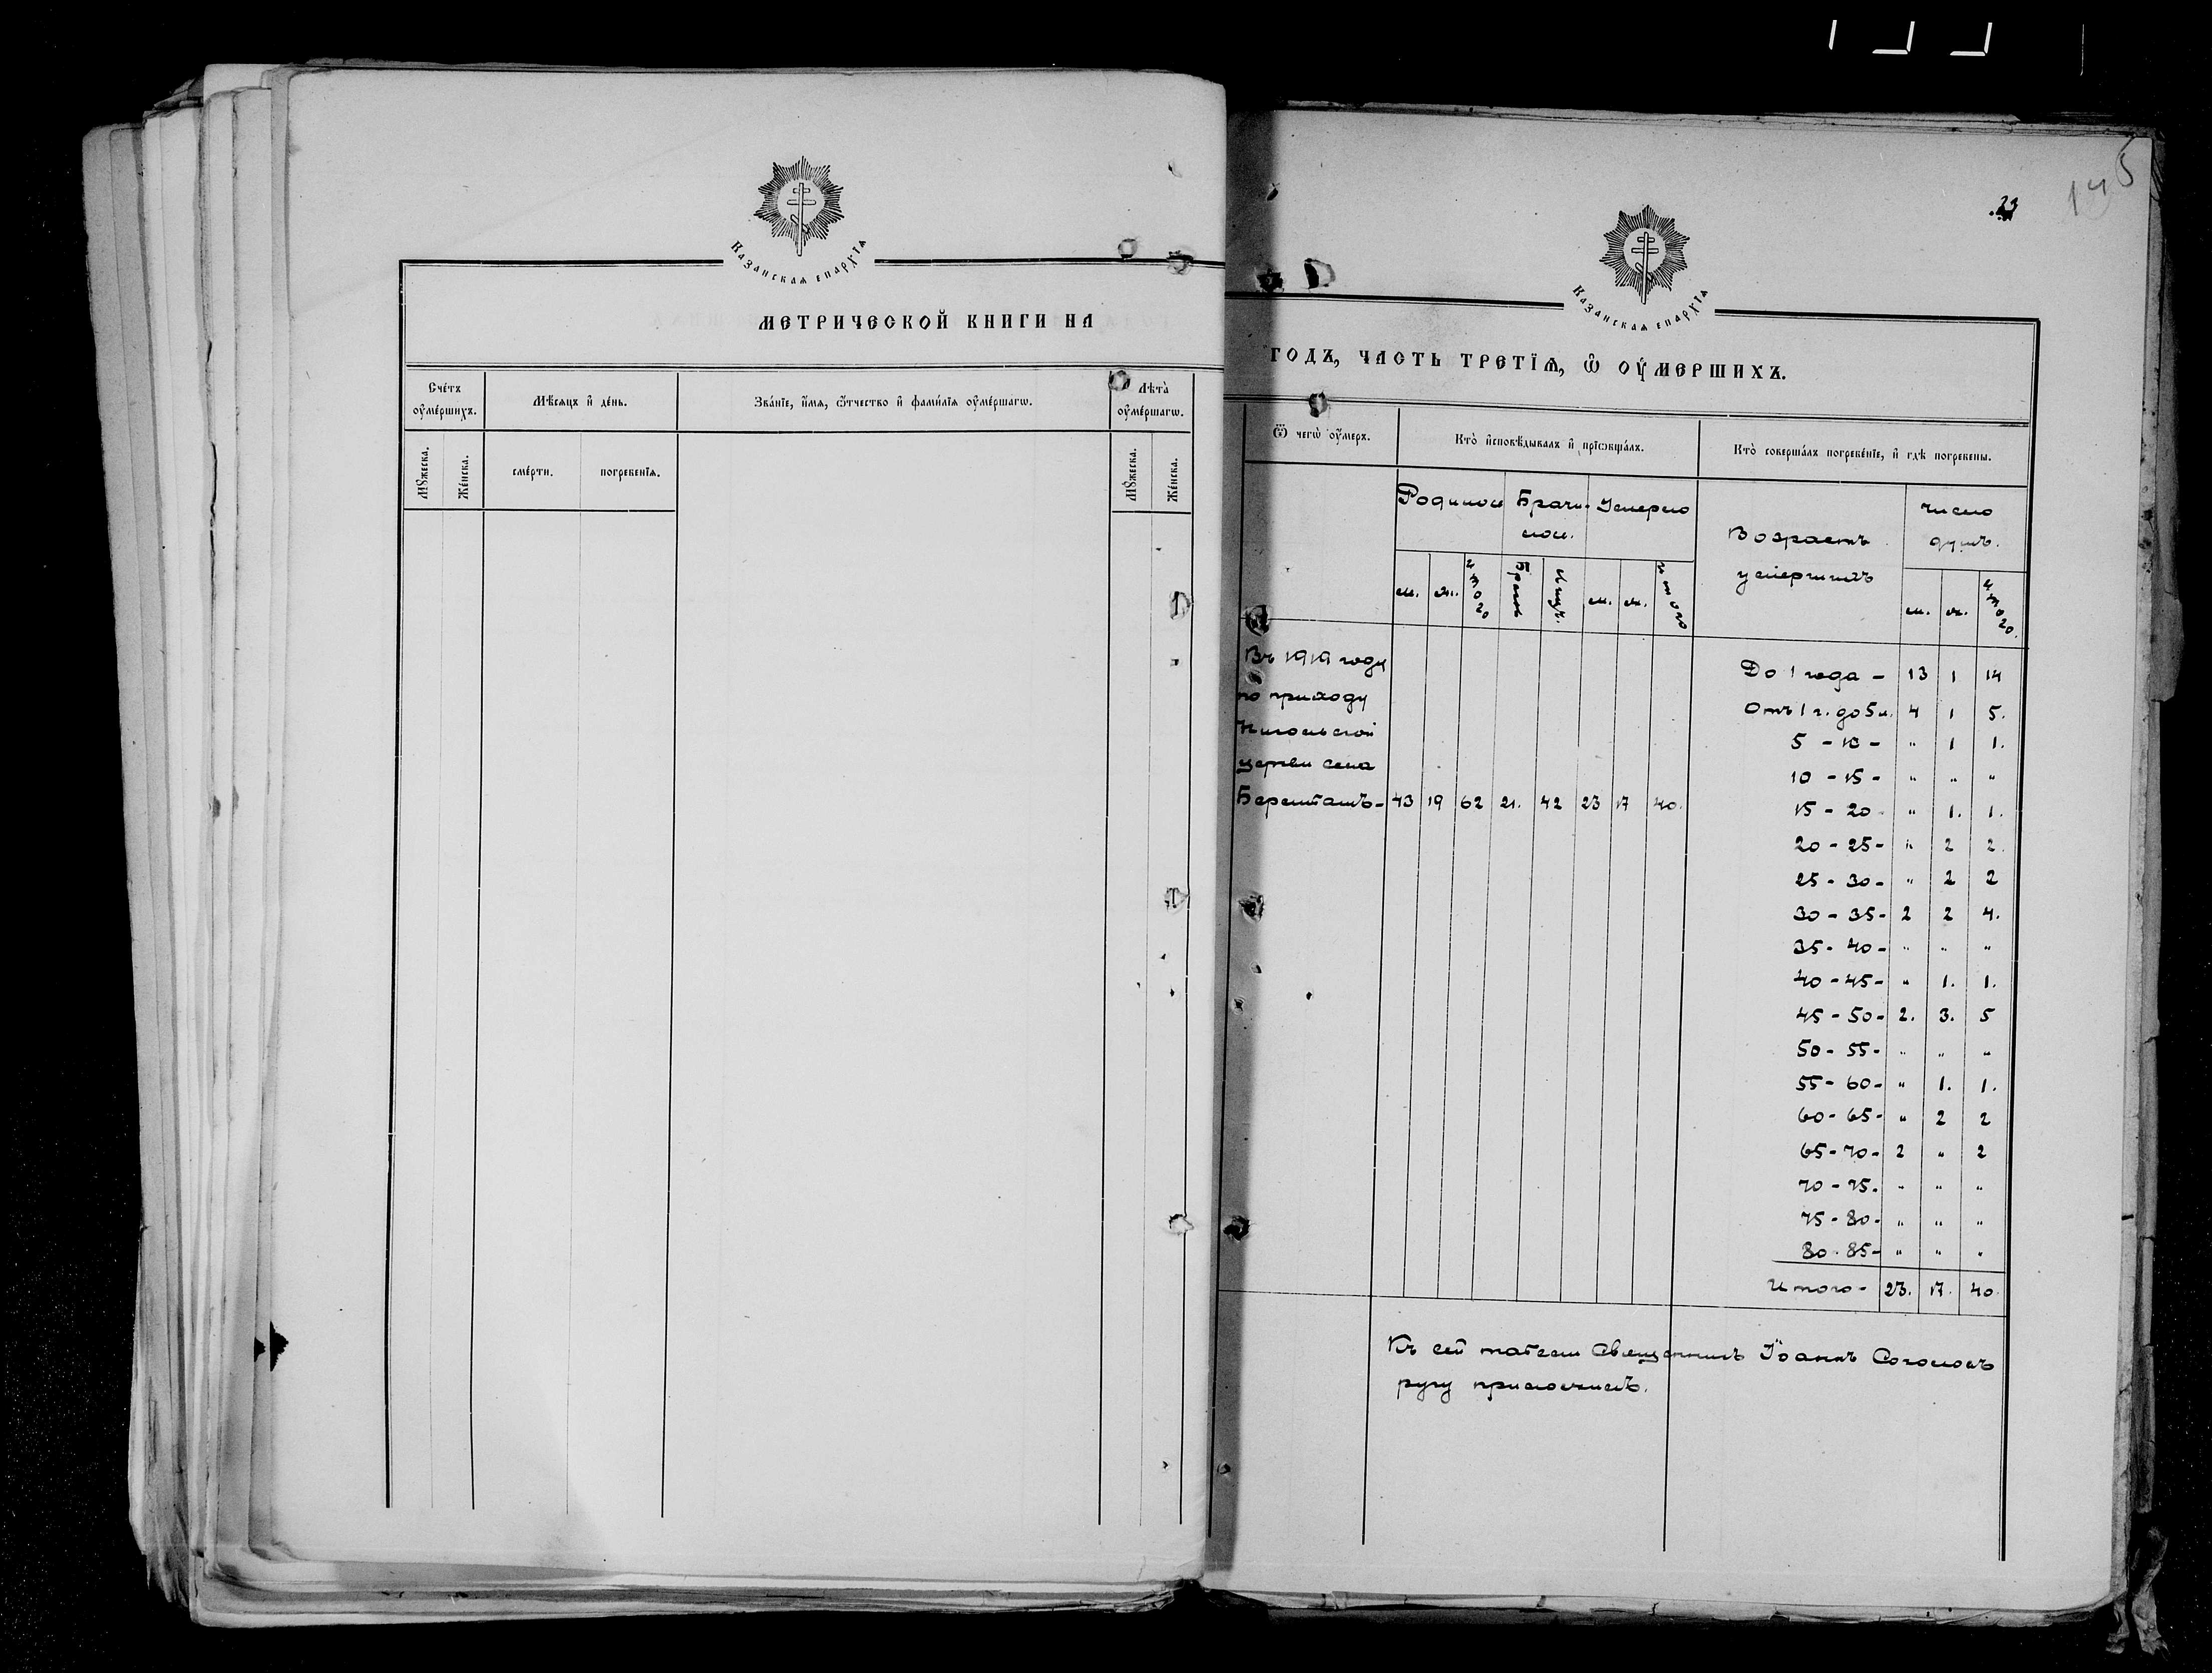 Казанскаѧ епархїѧ
МЕТРИЧЕСКОЙ КНИГИ НА
Сче́тъ оу҆ме́ршихъ.
Мѣ́сѧцъ и҆ де́нь.
Зва́нїе, и҆́мѧ, ѻ҆́тчество и҆ фамѝлїѧ оу҆ме́ршагѡ.
Лѣта̀ оу҆ме́ршагѡ.
Мꙋ́жеска.
Же́нска.
сме́рти.
погребе́нїѧ.
Мꙋ́жеска.
Же́нска.
23
145
Казанскаѧ епархїѧ
ГОДЪ, ЧАСТЬ ТРЕТЇѦ, Ѡ ОУМЕРШИХЪ.
Ѿ чегѡ̀ оу҆́меръ.
Кто̀ и҆сповѣ́дывалъ и҆ прїѡбща́лъ.
Кто̀ соверша́лъ погребе́нїе, и҆ гдѣ̀ погребены.
Родилось
Брачи-
лось.
Умерло
Возрастъ
умершихъ
число
душъ.
м. ж. итого Браковъ Лицъ. м. ж. итого
м. ж. итого.
Въ 1919 году
по приходу
Никольской
церкви села
43 19 62 21. 42 23 17 40.
До 1 года - 13 1 14
Отъ 1 г. до 5 л. 4 1 5.
5 - 10 - " 1 1.
10 - 15 - " " "
15 - 20 - " 1. 1.
20 - 25 - " 2 2.
25 - 30 - " 2 2
30 - 35 - 2 2 4.
35 - 40 - " " "
40 - 45 - " 1. 1.
45 - 50 - 2. 3. 5
50 - 55 - " " "
55 - 60 - " 1. 1.
60 - 65 - " 2 2
65 - 70 - 2 " 2
70 - 75. " " "
75 - 80 - " " "
80 - 85 - " " "
Итого - 23. 17. 40
Къ сей табели Священникъ Іоаннъ
руку приложилъ.